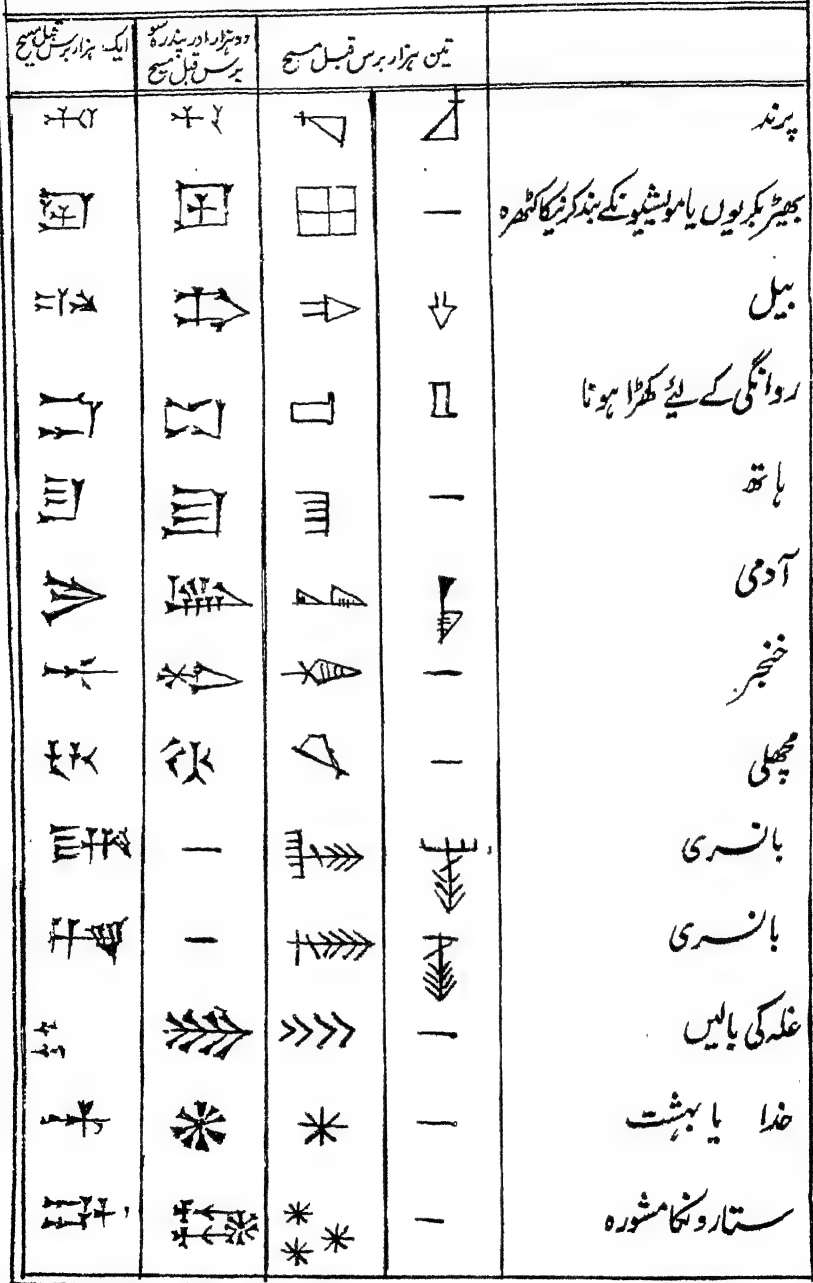 تین ہزار برس قبل مسیح
دو ہزار اور پندرہ سو
برس قبل مسیح
ایک ہزار برس قبل مسیح
پرند
بھیڑ بکریوں یا مویشیونکے بند کرنیکا کٹھرہ
بیل
روانگی کے لیٔے کھڑا ہونا
ہاتھ
آدمی
خنجر
مچھلی
بانسری
بانسری
غلہ کی بالیں
خدا یا بہشت
ستارونکا مشورہ